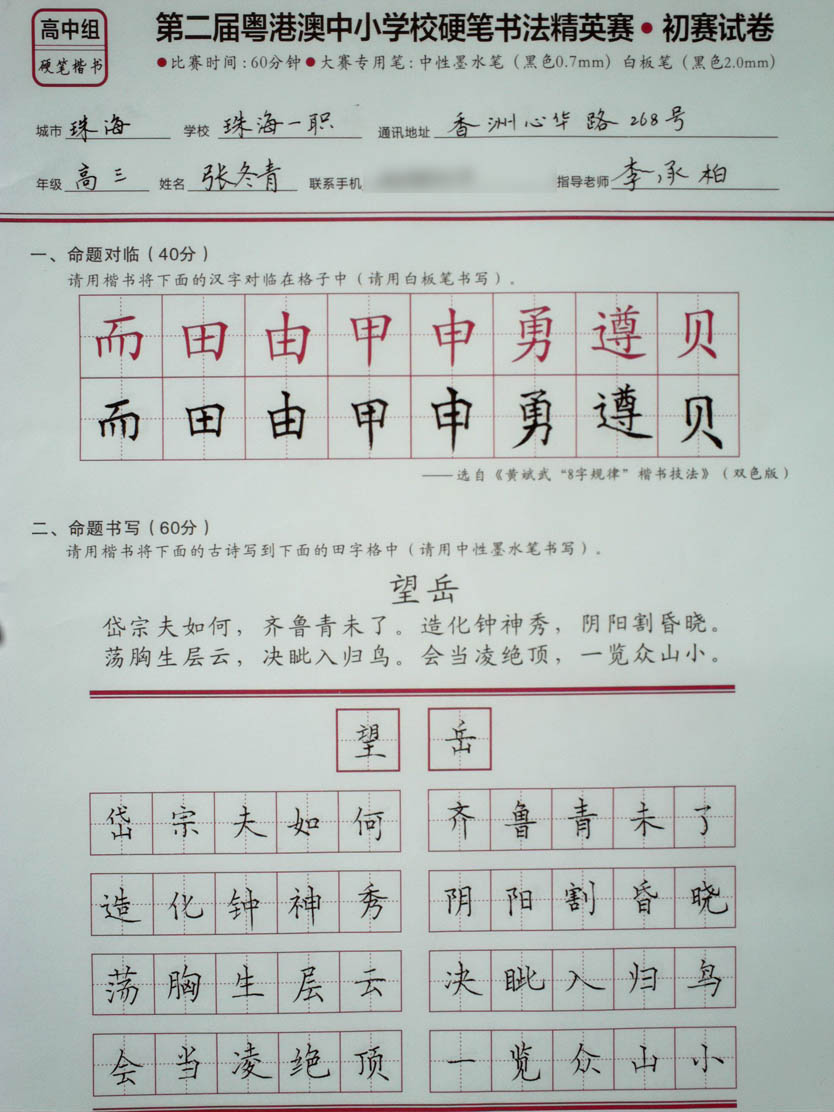 高中组
硬笔楷书
第二届粤港澳中小学校硬笔书法精英赛•初赛试卷
●比赛时间:60分钟●大赛专用笔:中性墨水笔(黑色0.7mm)白板笔(黑色2.0mm)
城市 珠海 学校 珠海一职 通讯地址 香洲心华路268号
年级 高三 姓名 张冬青 联系手机 指导老师 李承柏
一、命题对临(40分)
请用楷书将下面的汉字对临在格子中(请用白板笔书写)。
而田由甲申勇遵贝
而田由甲申勇遵贝
——选自《黄斌武“8字规律”楷书技法》(双色版)
二、命题书写(60分)
请用楷书将下面的古诗写到下面的田字格中(请用中性墨水笔书写)。
望岳
岱宗夫如何,齐鲁青未了。造化钟神秀,阴阳割昏晓。
荡胸生层云,决眦入归鸟。会当凌绝顶,一览众山小。
望岳
岱宗夫如何 齐鲁青未了
造化钟神秀 阴阳割昏晓
荡胸生层云 决眦入归鸟
会当凌绝顶 一览众山小